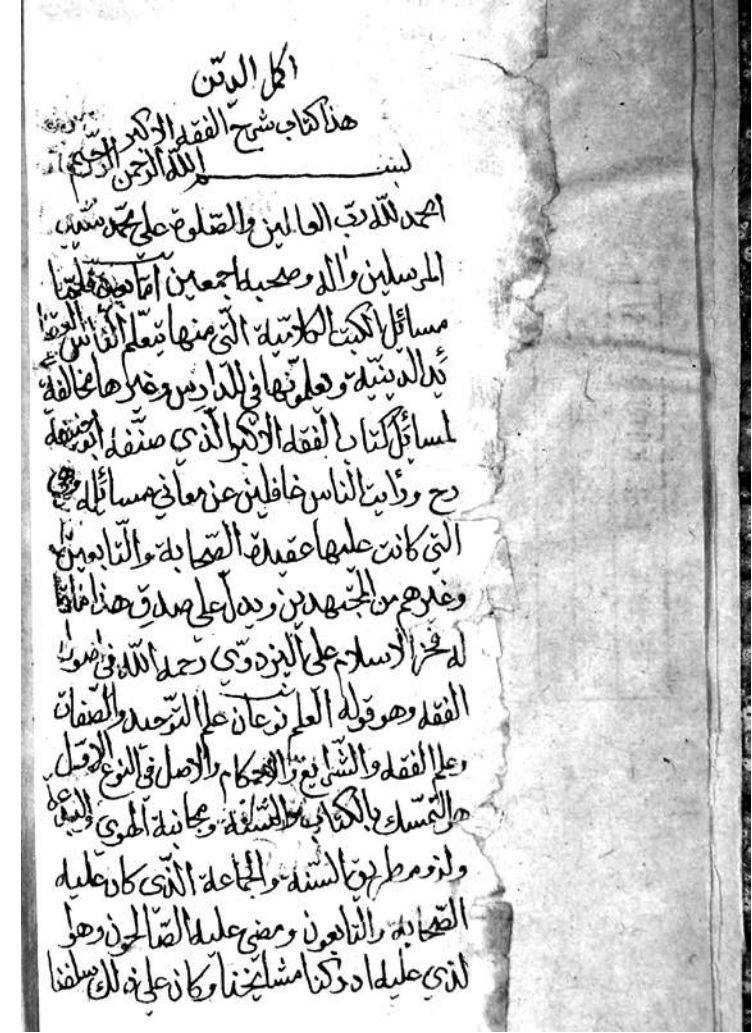 اكمل الدين
هذا كتاب شرح الفقه الاكبر
بسم الله الرحمن الرحيم
الحمد لله رب العالمين والصلوة على محمد سيد
المرسلين واله وصحبه اجمعين اما بعد
مسائل الكتب الكلامية التي منها يتعلم الناس العقا
ئد الدينية ويعلمونها في المدارس وغيرها مخالفة
لمسائل كتاب الفقه الاكبر الذي صنفه ابو حنيفة
رح ورايت الناس غافلين عن معاني مسائله وهي
التي كانت عليها عقيدة الصحابة والتابعين
وغيرهم من المجتهدين ويدل على صدق هذا ما قا
له فخر الاسلام علي البزدوي رحمه الله في اصول
الفقه وهو قوله العلم نوعان علم التوحيد والصفات
وعلم الفقه والشرايع والاحكام والاصل في النوع الاول
هو التمسك بالكتاب والسنة ومجانبة الهوى والبدعة
ولزوم طريق السنة والجماعة الذي كان عليه
الصحابة والتابعون ومضى عليه الصالحون وهوا
لذي عليه ادركنا مشايخنا وكان على ذلك سلفنا